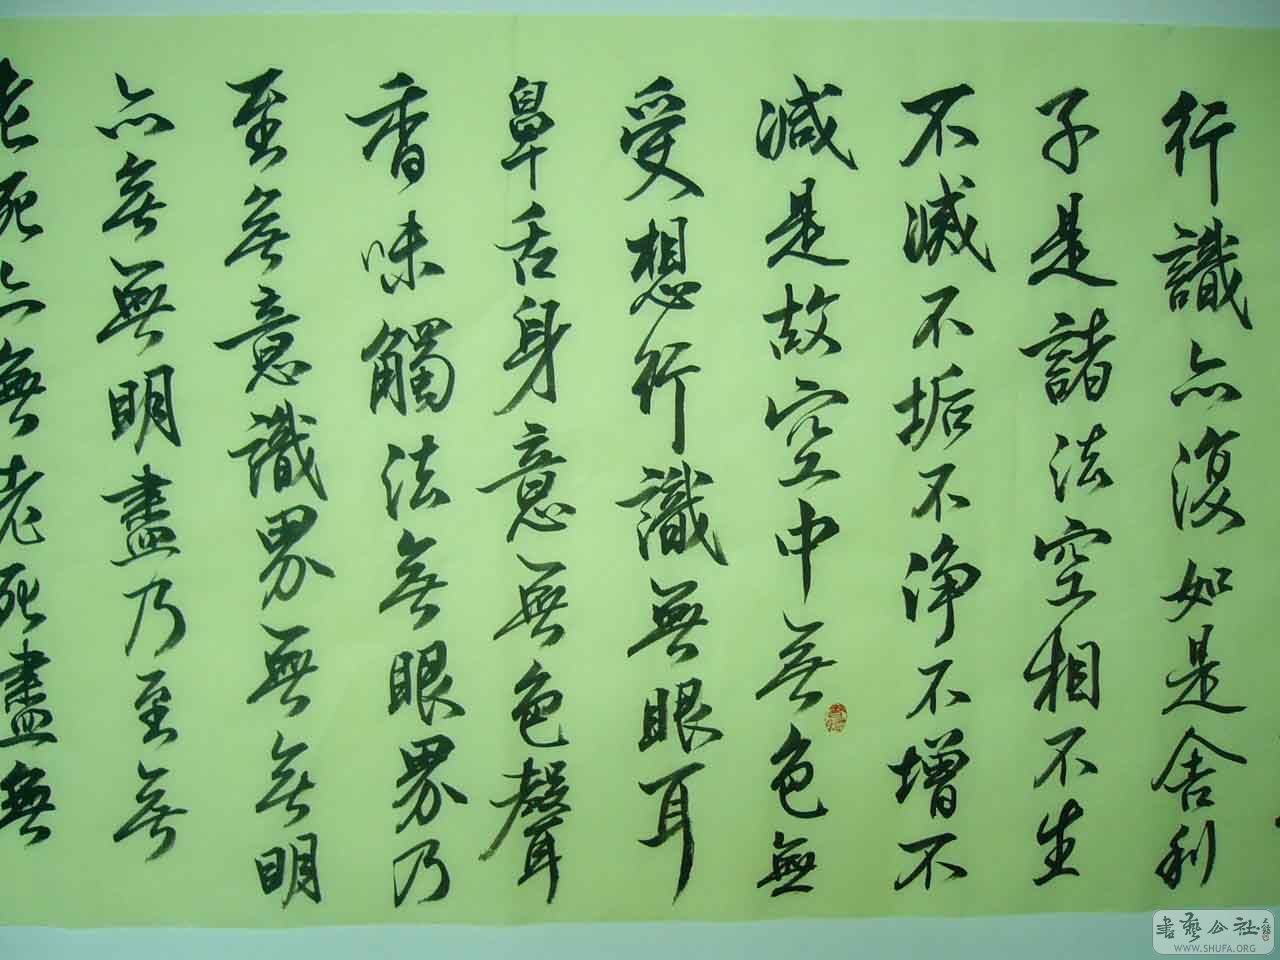 行識亦復如是舍利
子是諸法空相不生
不滅不垢不淨不增不
減是故空中無色無
受想行識無眼耳
鼻舌身意無色聲
香味觸法無眼界乃
至無意識界無無明
亦無無明盡乃至無
老死亦無老死盡無
書藝公社
WWW.SHUFA.ORG